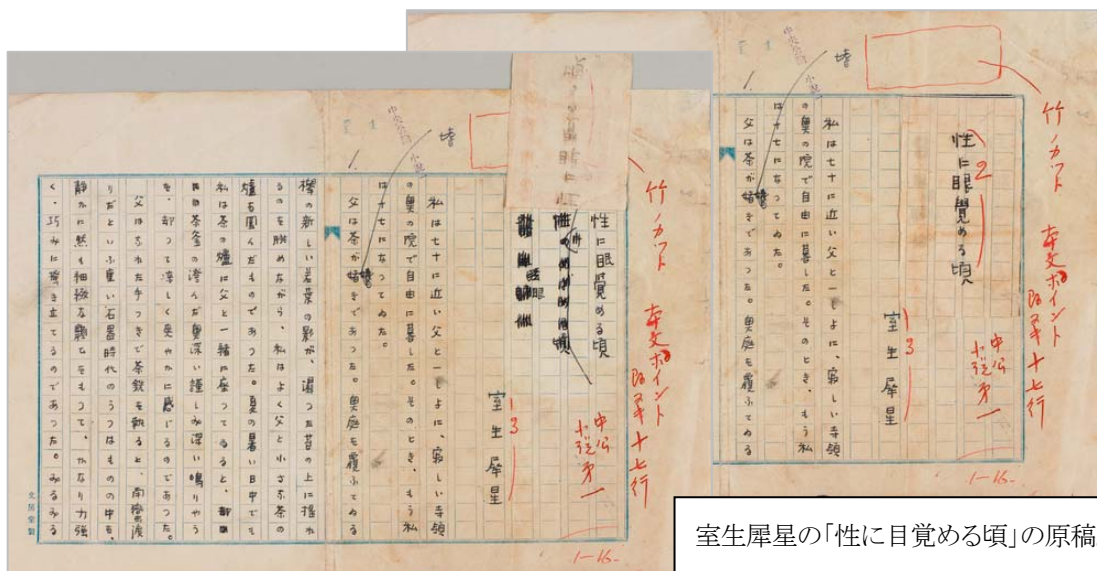 竹ノカット
中公
小説第一
性に眼覚める頃
室生犀星
私は七十に近い父と一しよに、寂しい寺領
の奥の院で自由に暮した。そのとき、もう私
は十七になつてゐた。
父は茶が嗜きであつた。奥庭を覆ふてゐる
竹ノカット
十七行
中公
小説第一
1-16-
性に眼覚める頃
室生犀星
私は七十に近い父と一しよに、寂しい寺領
の奥の院で自由に暮した。そのとき、もう私
は十七になつてゐた。
父は茶が嗜きであつた。奥庭を覆ふてゐる
欅の新しい若葉の影が、湿つた苔の上に揺れ
るのを眺めながら、私はよく父と小さな茶の
爐を囲んだものであつた。夏の暑い日中でも
私は茶の爐に父と一緒に座つてゐると、
茶釜の澄んだ奥深い謹しみ深い鳴りやう
を、却つて涼しく爽やかに感じるのであつた。
父はなれた手つきで茶筅を執ると、南蛮渡
りだといふ重い石器時代のうつはものの中を、
静かに然も細緻な顫ひをもつて、かなり力強
く、巧みに掻き立てるのであつた。みるみる
文房堂製
室生犀星の「性に目覚める頃」の原稿